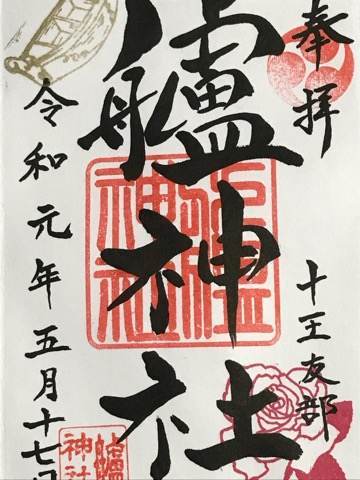 奉拝
十王友部
艫神社
令和元年五月十七日
艫神社